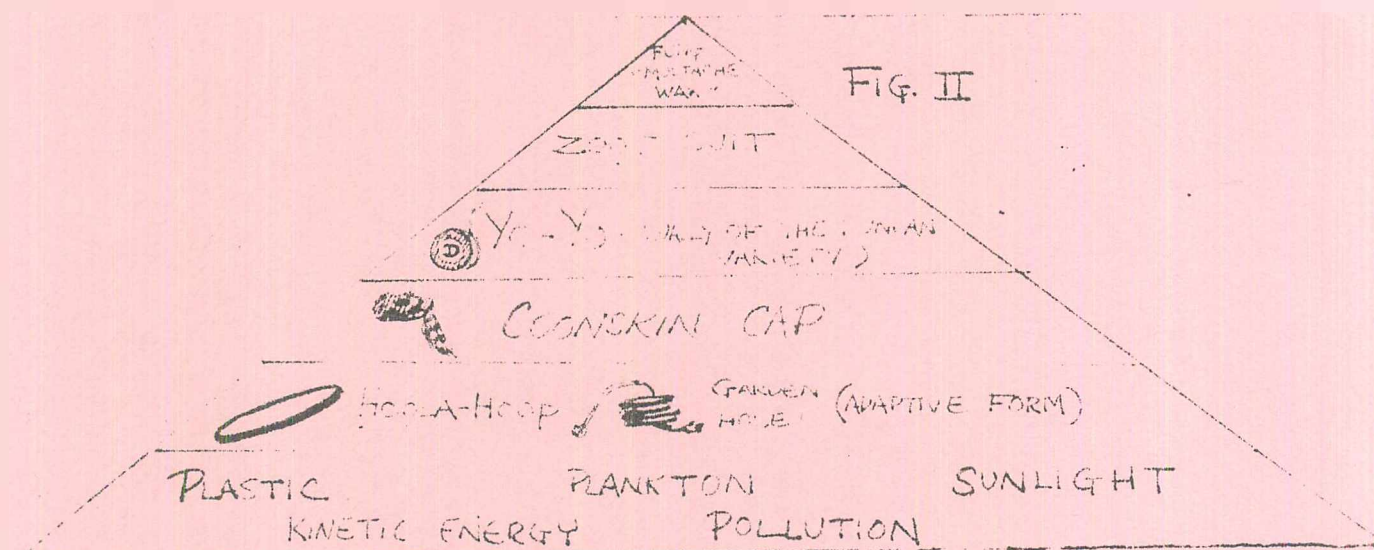 FIG. II
MUSTACHE
WAX"
ZOOT SUIT
YO-YO OF THE
VARIETY)
COONSKIN CAP
HOOLA-HOOP GARDEN (ADAPTIVE FORM)
HOSE
PLASTIC PLANKTON SUNLIGHT
KINETIC ENERGY POLLUTION